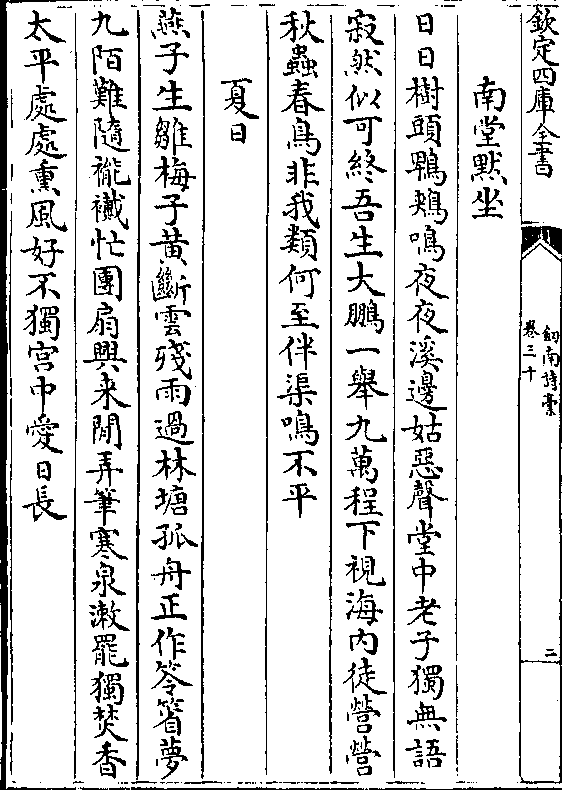 欽定四庫全書
劒南詩藁
卷三十
二
南堂黙坐
日日樹頭鵯鵊鳴夜夜溪邊姑惡聲堂中老子獨無語
寂然似可終吾生大鵬一舉九萬程下視海内徒營營
秋蟲春鳥非我類何至伴渠鳴不平
夏日
燕子生雛梅子黄斷雲殘雨過林塘孤舟正作笭箵夢
九陌難隨襱襶忙團扇興来閒弄筆寒泉漱罷獨焚香
太平處處熏風好不獨宫中愛日長